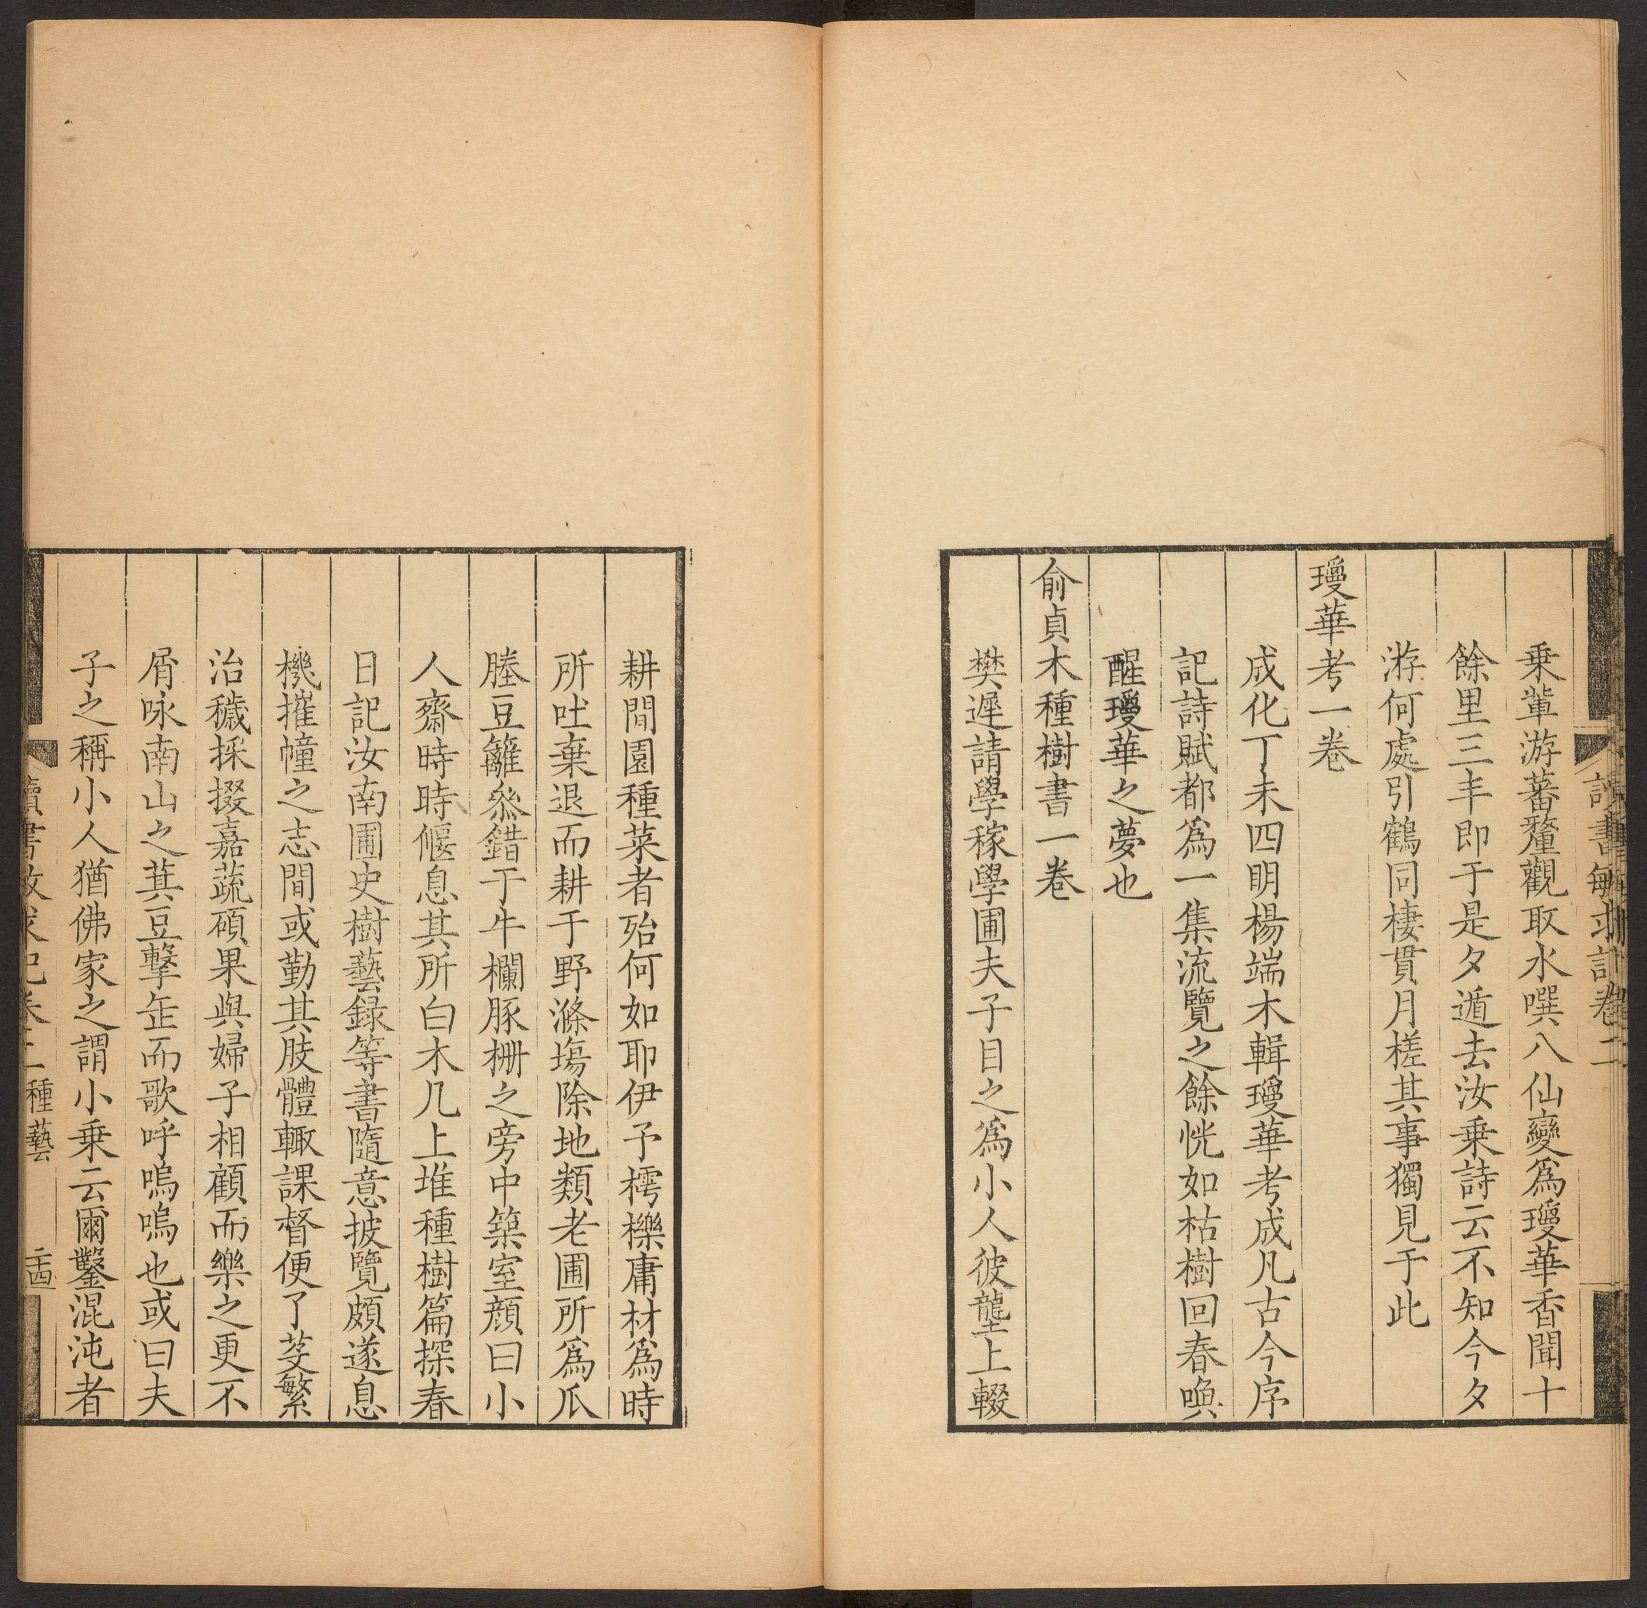 讀書敏求記卷二
乗軰游蕃釐觀取水噀八仙變爲瓊華香聞十
餘里三丰即于是夕遁去汝乗詩云不知今夕
游何處引鶴同棲貫月槎其事獨見于此
瓊華考一卷
成化丁未四明楊端木輯瓊華考成凡古今序
記詩賦都爲一集流覽之餘恍如枯樹回春喚
醒瓊華之夢也
俞貞木種樹書一卷
樊遲請學稼學圃夫子目之爲小人彼壟上輟
耕間園種菜者殆何如耶伊予樗櫟庸材爲時
所吐棄退而耕于野滌塲除地類老圃所爲瓜
塍豆籬叅錯于牛欄豚柵之旁中築室顔曰小
人齋時時偃息其所白木几上堆種樹篇探春
日記汝南圃史樹藝録等書隨意披覽頗遂息
機摧幢之志間或勤其肢體輙課督便了芟繁
治穢採掇嘉蔬碩果與婦子相顧而樂之更不
屑咏南山之萁豆擊缶而歌呼嗚嗚也或曰夫
子之稱小人猶佛家之謂小乗云爾鑿混沌者
讀書敏求記卷二 種藝 二十四